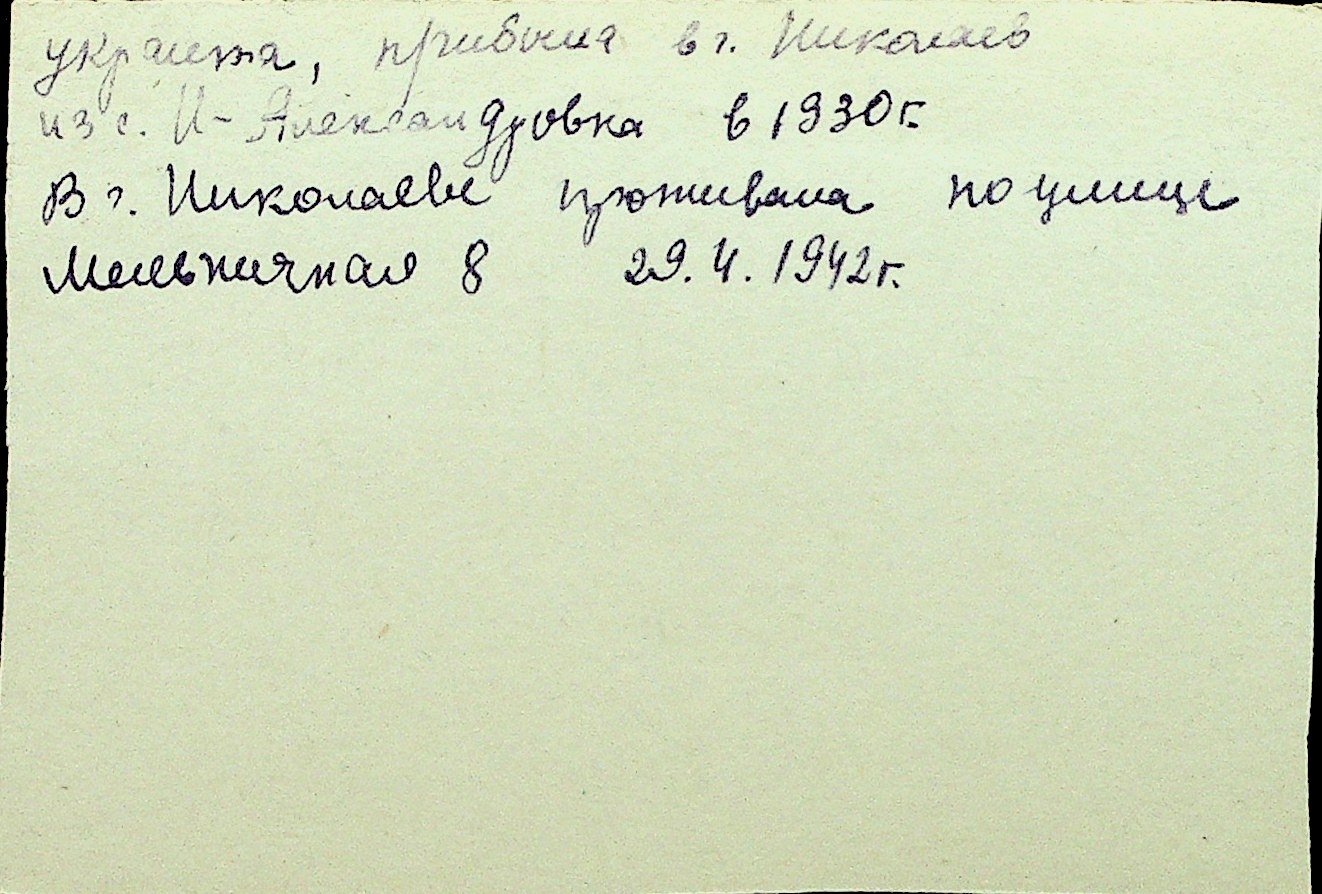 украинка, прибыла в г. Николаев
из с. Н-Александровка в 1930 г.
В г. Николаеве проживала по улице
Мельничная 8 29.4.1942 г.